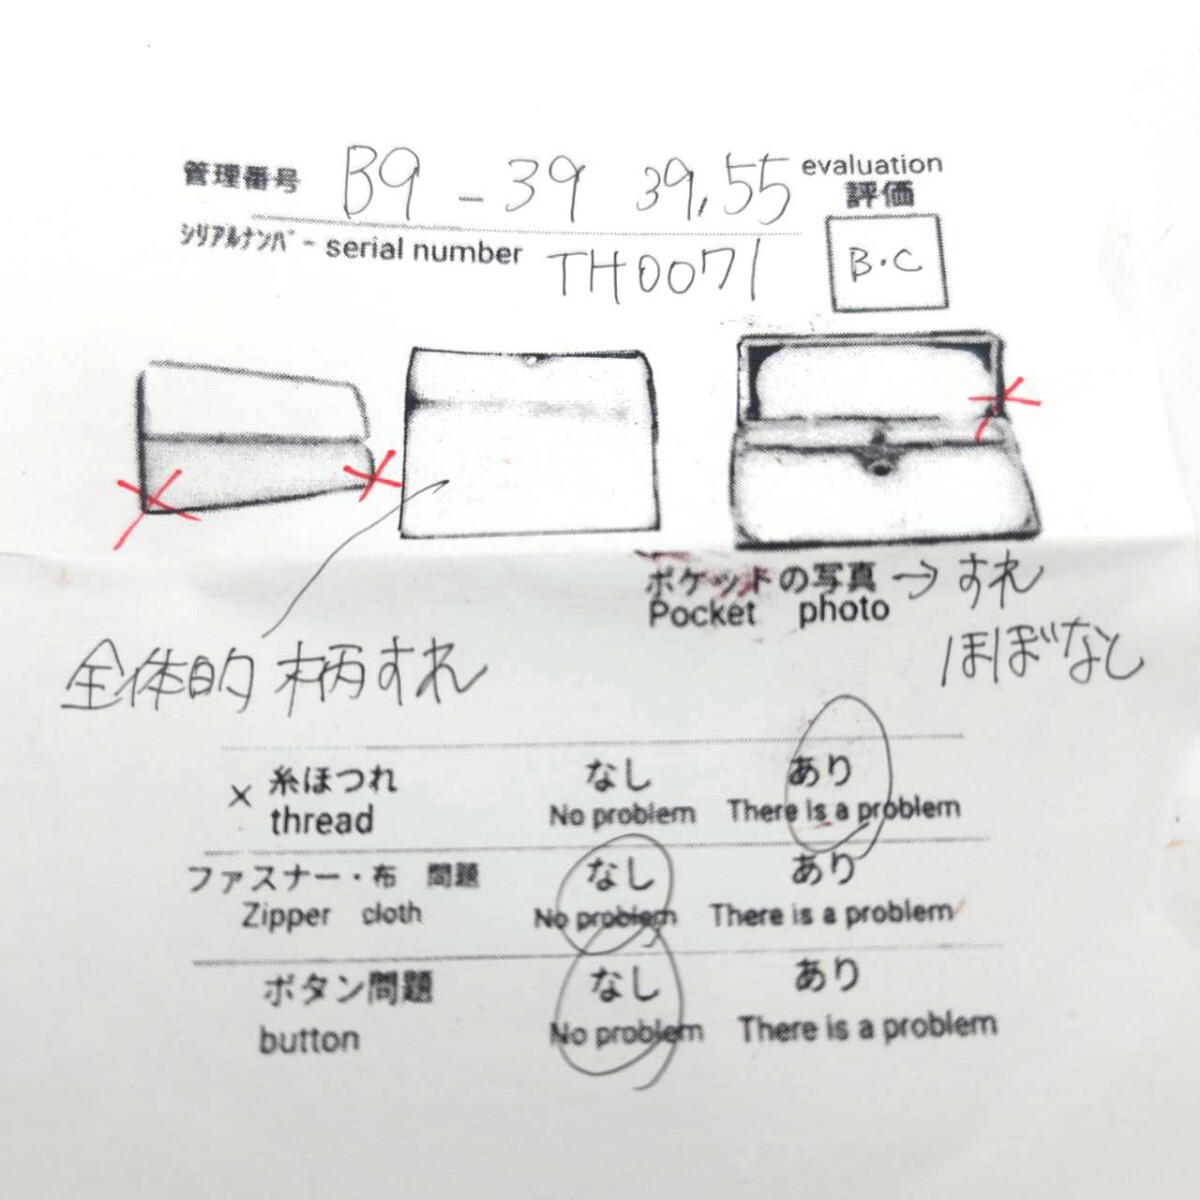 管理番号 B9 - 39 39,55
evaluation
評価
B・C
ｼﾘｱﾙﾅﾝﾊﾞｰ serial number TH0071
ポケットの写真 → すれ
Pocket photo
ほぼなし
全体的 柄すれ
× 糸ほつれ なし あり
thread No problem There is a problem
ファスナー・布 問題 なし あり
Zipper cloth No problem There is a problem
ボタン問題 なし あり
button No problem There is a problem